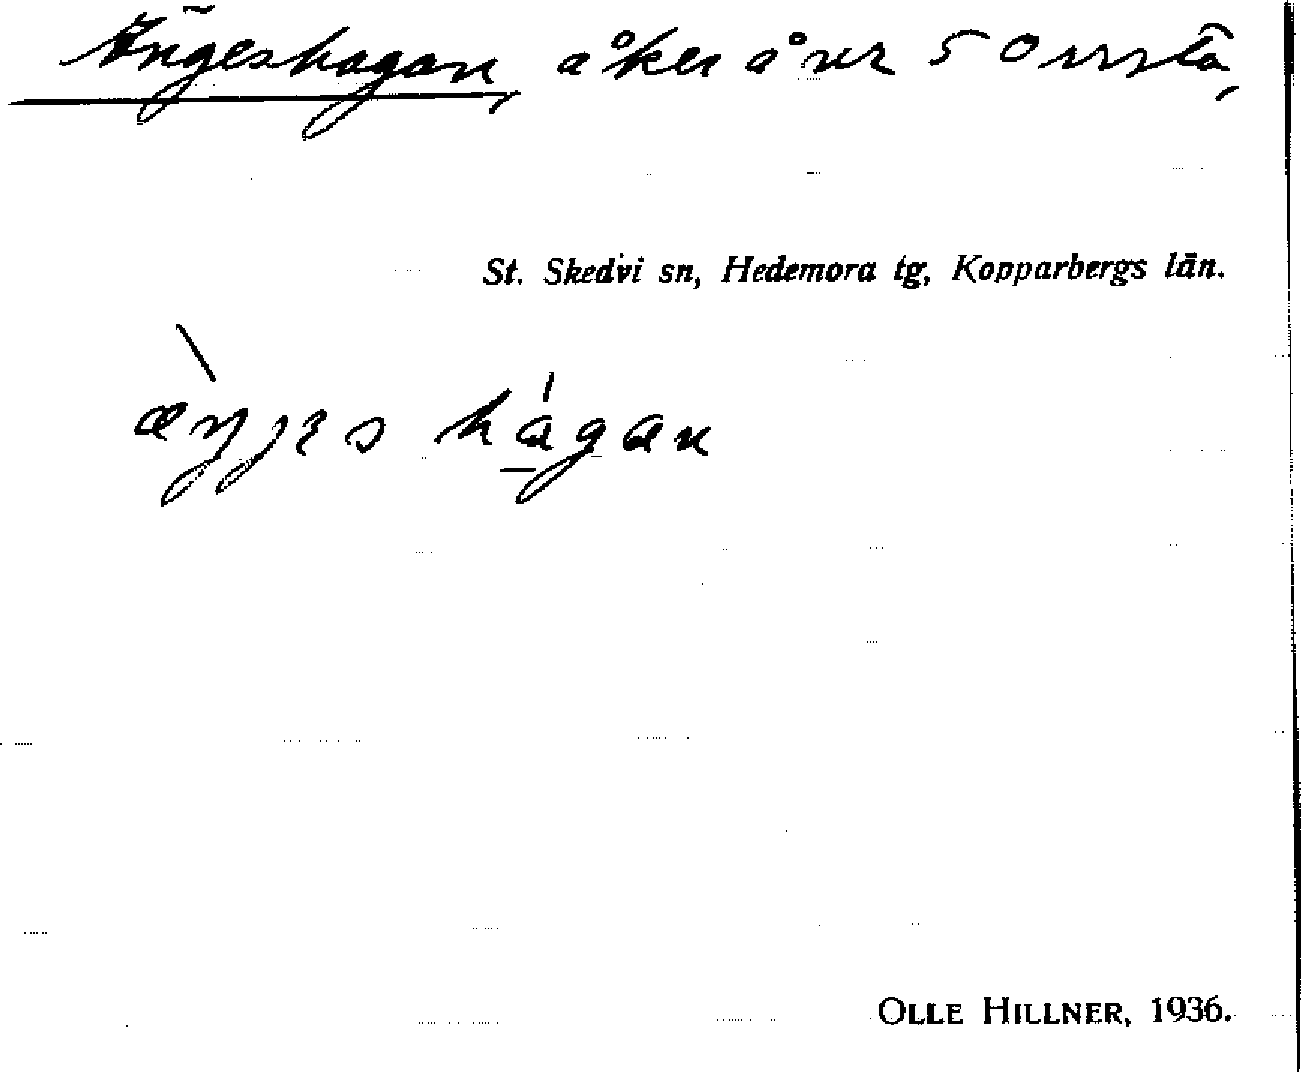 Ängeshagan, åker å nr 5 Orrsta,
St. Skedvi sn, Hedemora tg, Kopparbergs län.
æ̀ŋjes hágan
OLLE HILLNER, 1936.